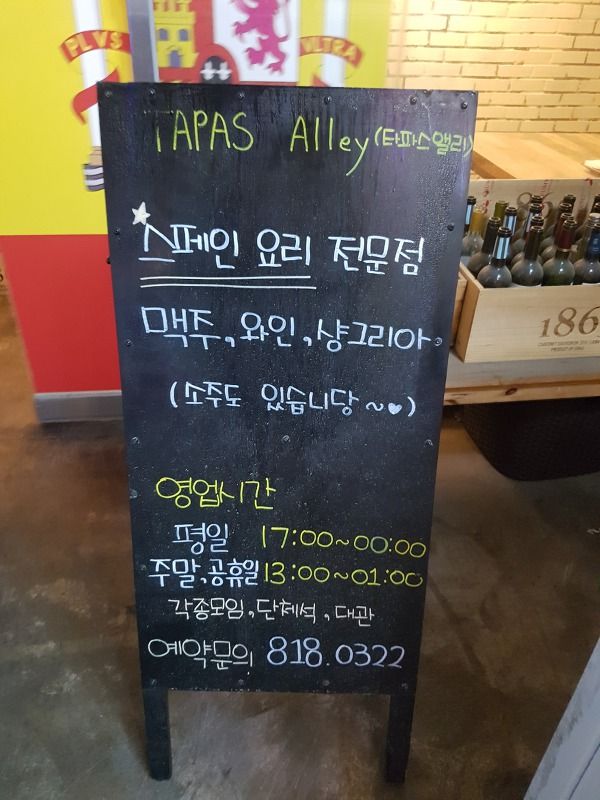 PLVS
VLTRA
TAPAS Alley(타파스앨리)
스페인 요리 전문점
맥주, 와인, 샹그리아
(소주도 있습니당~♥)
영업시간
평일 17:00~00:00
주말,공휴일 13:00~01:00
각종모임, 단체석, 대관
예약문의 818.0322
186
PRODUCT OF CHILE